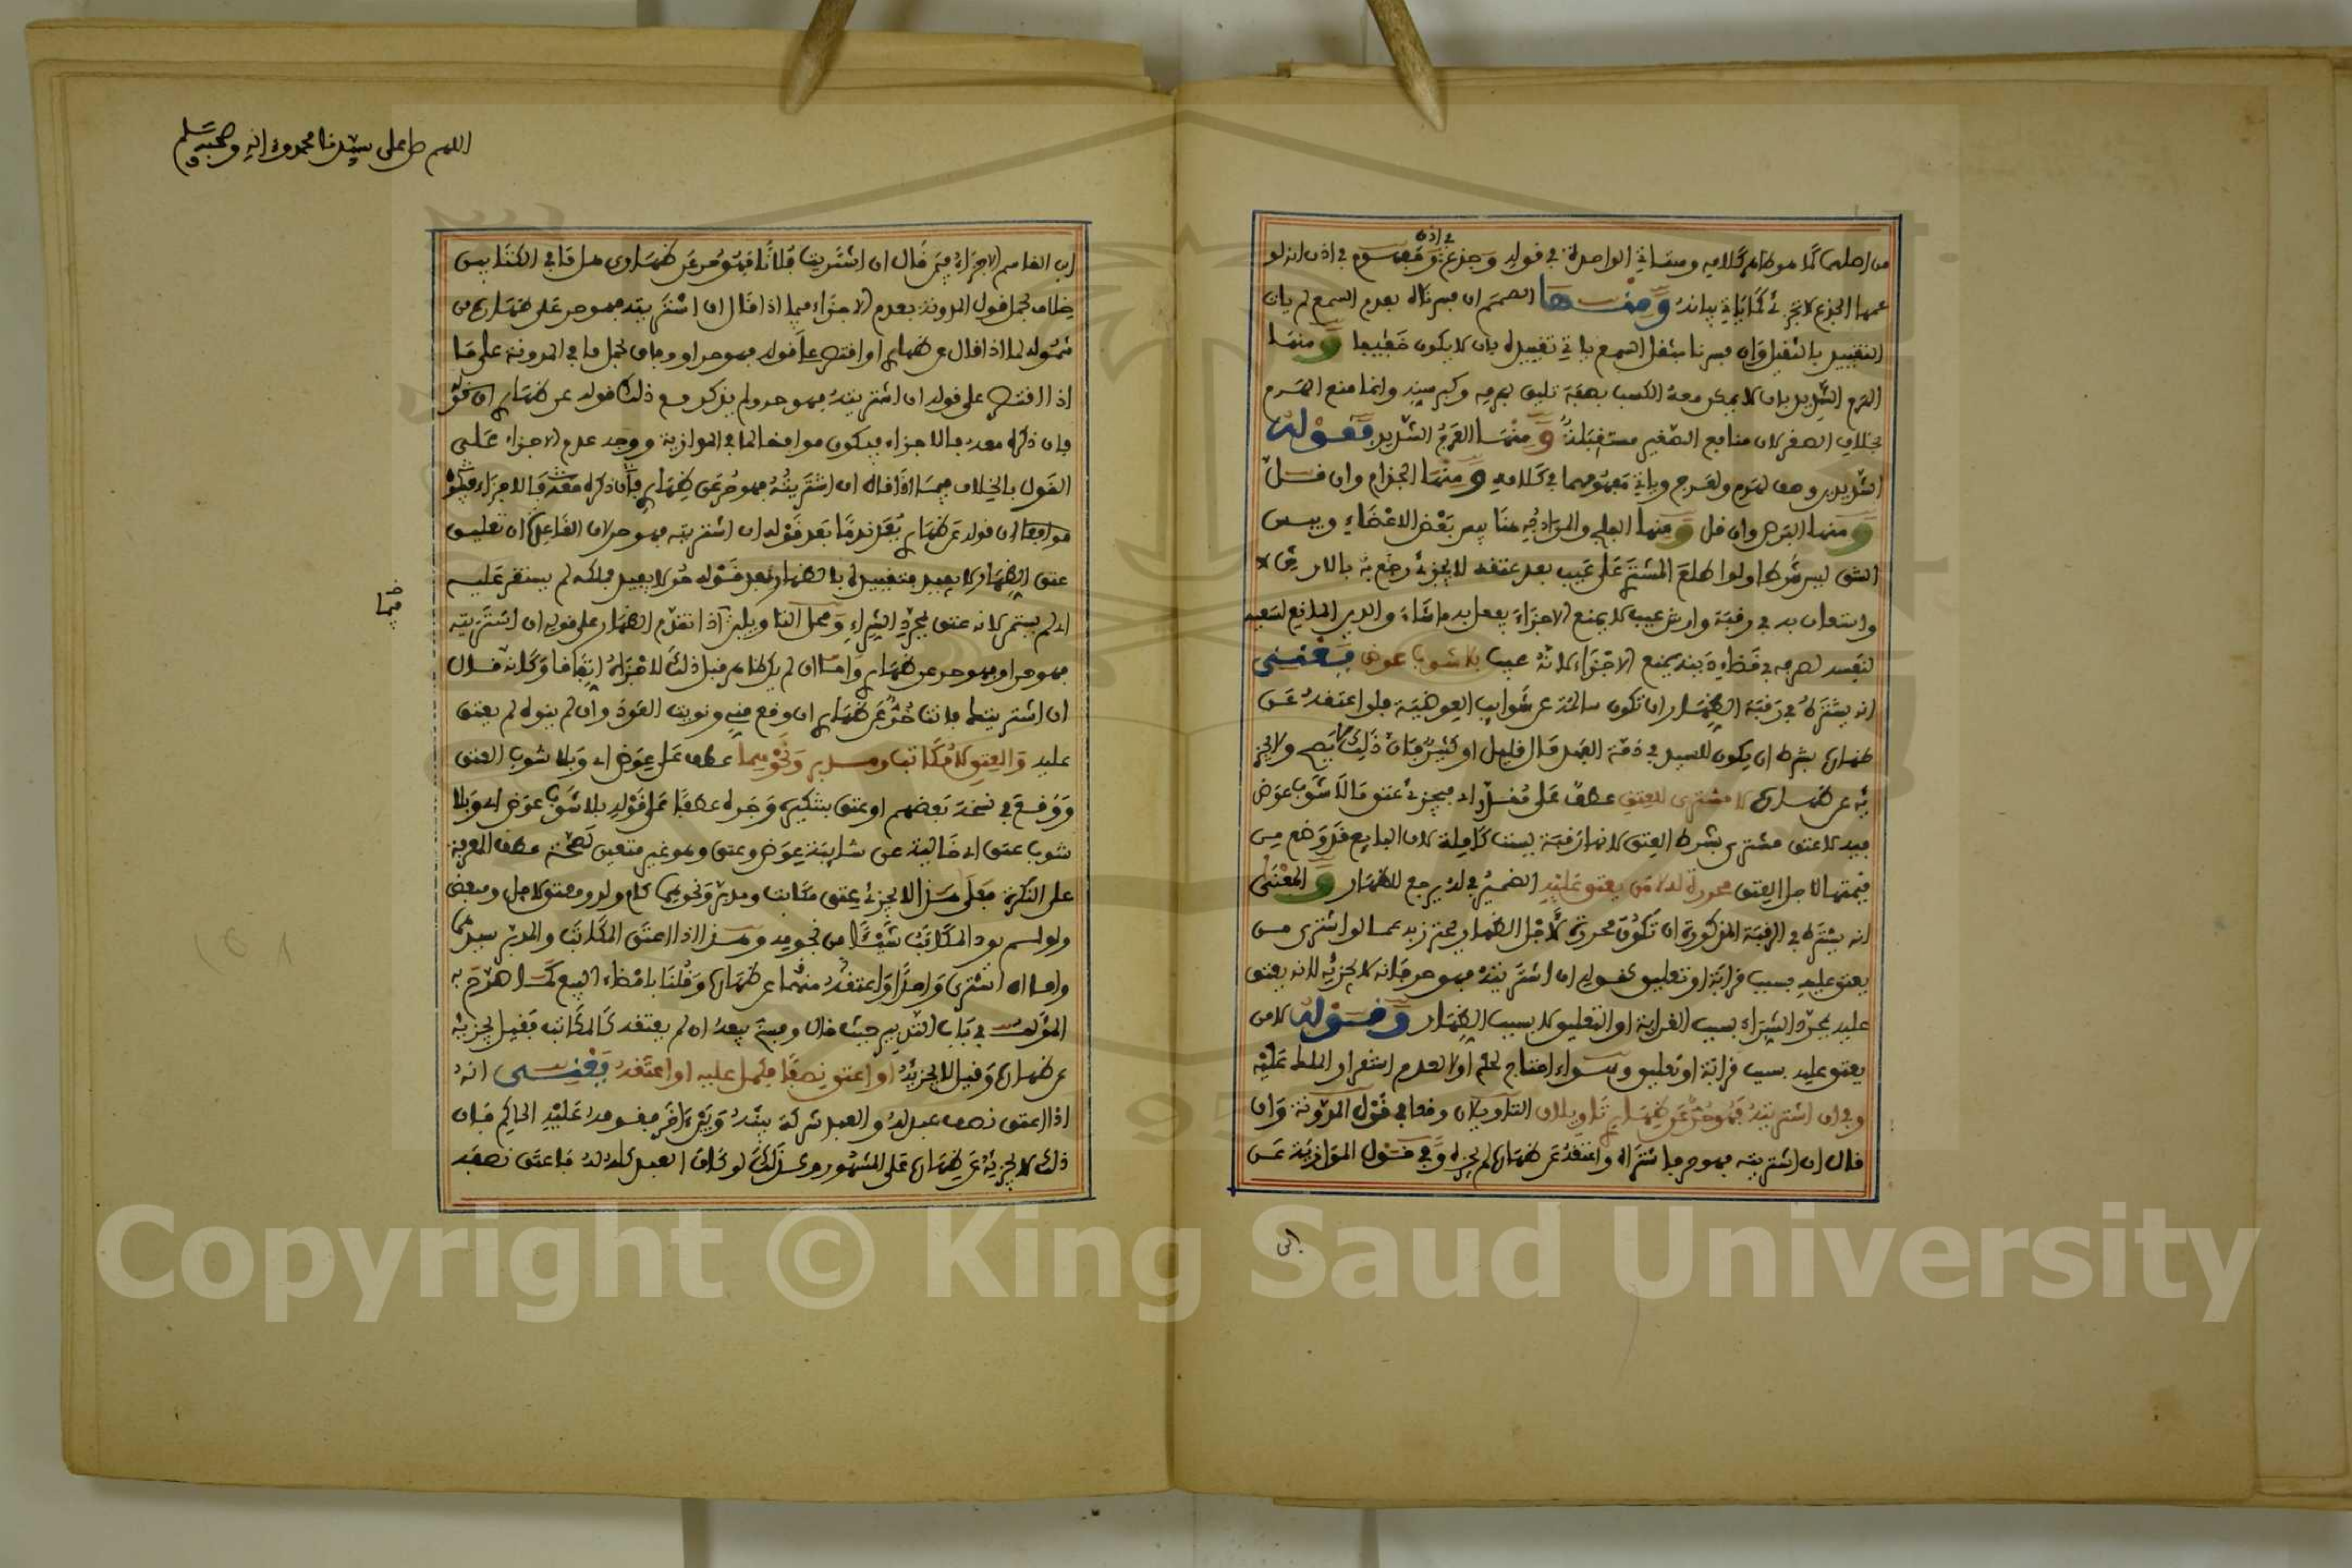 من اصلها كما هو ظاهر كلامه ومساتي الواحدة في قوله وجذع في اذن ومفهوم في اذن انه لو
عمها الجذع لا يجزئ كما ياتي بيانه ومنها الصمم ان فسرناه بعدم السمع لم يات
التقييد بالثقيل وان فسرنا بثقل السمع ياتي تقييده بان لا يكون خفيفا ومنها
الهرم الشديد بان لا يمكن معه الكسب بصفة تليق بهرمه وكبر سنه وانما منع الهرم
بخلاف الصغر لان منافع الصغير مستقبلة ومنها العرج الشديد فقوله
الشديدين وصف لهرم ولعرج وياتي مفهومهما في كلامه ومنها الجذام وان قل
ومنها البرص وان قل ومنها الفلج والمراد به هنا يبس بعض الاعضاء ويبس
الشق ليس شرطا ولو اطلع المشتري على عيب بعد عتقه لا يجزئ رجع به بالارش
واستعان به في رقبة وارش عيب لا يمنع الاجزاء يفعل به ما شاء والدين المانع لسعيه
لنفسه لصرفه في قضاء دينه يمنع الاجزاء لانه عيب بلا شوب عوض يعني
انه يشترط في رقبة الظهار ان تكون سالمة عن شوايب العوضية فلو اعتقه عن
ظهاره بشرط ان يكون للسيد في ذمة العبد مال قليل او كثير فان ذلك لا يصح ولا يجز
يه عن ظهاره لا مشترى للعتق عطف على مقدر اي فيجزئ عتق ما لا شوب عوض
فيه لا عتق مشترى بشرط العتق لانها رقبة ليست كاملة لان البايع قد وضع من
قيمتها لاجل العتق محررة له لا من يعتق عليه الضمير في له يرجع للظهار والمعنى
انه يشترط في الرقبة المذكورة ان تكون محررة لاجل الظهار يحترز به عما لو اشترى من
يعتق عليه بسبب قرابة او تعليق كقوله ان اشتريته فهو حر فانه لا يجزيه لانه يعتق
عليه بمجرد الشراء بسبب القرابة او التعليق لا بسبب الظهار وقوله لا من
يعتق عليه بسبب قرابة او تعليق وسواء احتاج لحكم او لا لعدم استقرار الملك عليه
وفي ان اشتريته فهو حر عن ظهاري تاويلان التاويلان وقعا في قول المدونة وان
قال ان اشتريته فهو حر فاشتراه واعتقه عن ظهاره لم يجزه وفي قول الموازية عن
ابن
اللهم صل على سيدنا محمد واله وصحبه وسلم
ابن القاسم الاجزاء فيمن قال ان اشتريت فلانا فهو حر عن ظهاري هل ما في الكتابين
خلاف فحمل قول المدونة بعدم الاجزاء فيما اذا قال ان اشتريته فهو حر على ظهاره من
شموله لما اذا قال عن ظهاري او اقتصر على قوله فهو حر او وفاق فحمل ما في المدونة على ما
اذا اقتصر على قوله ان اشتريته فهو حر ولم يذكر مع ذلك قوله عن ظهاري
فان ذكره معه فالاجزاء فيكون موافقا لما في الموازية ووجه عدم الاجزاء على
القول بالخلاف فيما اذا قال ان اشتريته فهو حر عن ظهاري فان ذكره معه فالاجزاء فيكون
موافقا ان قوله عن ظهاري يعد ندما بعد قوله ان اشتريته فهو حر لان القاعدة ان تعليق
عتق الظهار لا يفيد فتقييده بالظهار بعد قوله حر لا يفيد فملكه لم يستقر عليه
اي لم يستمر لانه عتق بمجرد الشراء ومحل التاويلين اذا تقدم الظهار على قوله ان اشتريته
فهو حر او فهو حر عن ظهاري واما ان لم يكن ظاهر قبل ذلك لاجزاه اتفاقا وكانه قال
ان اشتريتك فانت حر عن ظهاري ان وقع مني ونويت العود وان لم ينوه لم يعتق
عليه والعتق لا مكاتب ومدبر ونحوهما عطف على عوض اي وبلا شوب العتق
ووقع في نسخة بعضهم او عتق بتنكيره وجره عطفا على قوله بلا شوب عوض اي وبلا
شوب عتق اي خالية عن شايبة عوض وعتق وهو غير متعين لصحة عطف المعرفة
على النكرة فعلى هذا لا يجزئ عتق مكاتب ومدبر ونحوهما كام ولد ومعتق لاجل ومبعض
ولو لم يود المكاتب شيئا من نجومه وهذا اذا اعتق المكاتب والمدبر سيدهما
واما ان اشترى واحدا واعتقه منهما عن ظهاره وقلنا بامضاء البيع كما صرح به
المؤلف في باب التدبير حيث قال وفسخ بيعه ان لم يعتقه كالمكاتب فقيل يجزيه
عن ظهاره وقيل لا يجزيه او اعتق نصفا فكمل عليه او اعتقه يعني انه
اذا اعتق نصف عبد له والعبد شركة بينه وبين اخر فقومه عليه الحاكم فان
ذلك لا يجزيه عن ظهاره على المشهور وكذلك لو كان العبد كله له فاعتق نصفه
Copyright © King Saud University